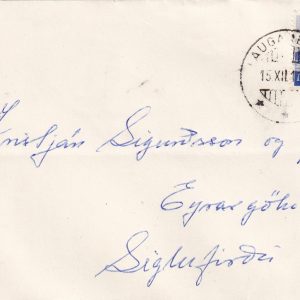 AUGA
15.XII.1
Kristján Sigurðsson og
Eyrargötu
Siglufirði